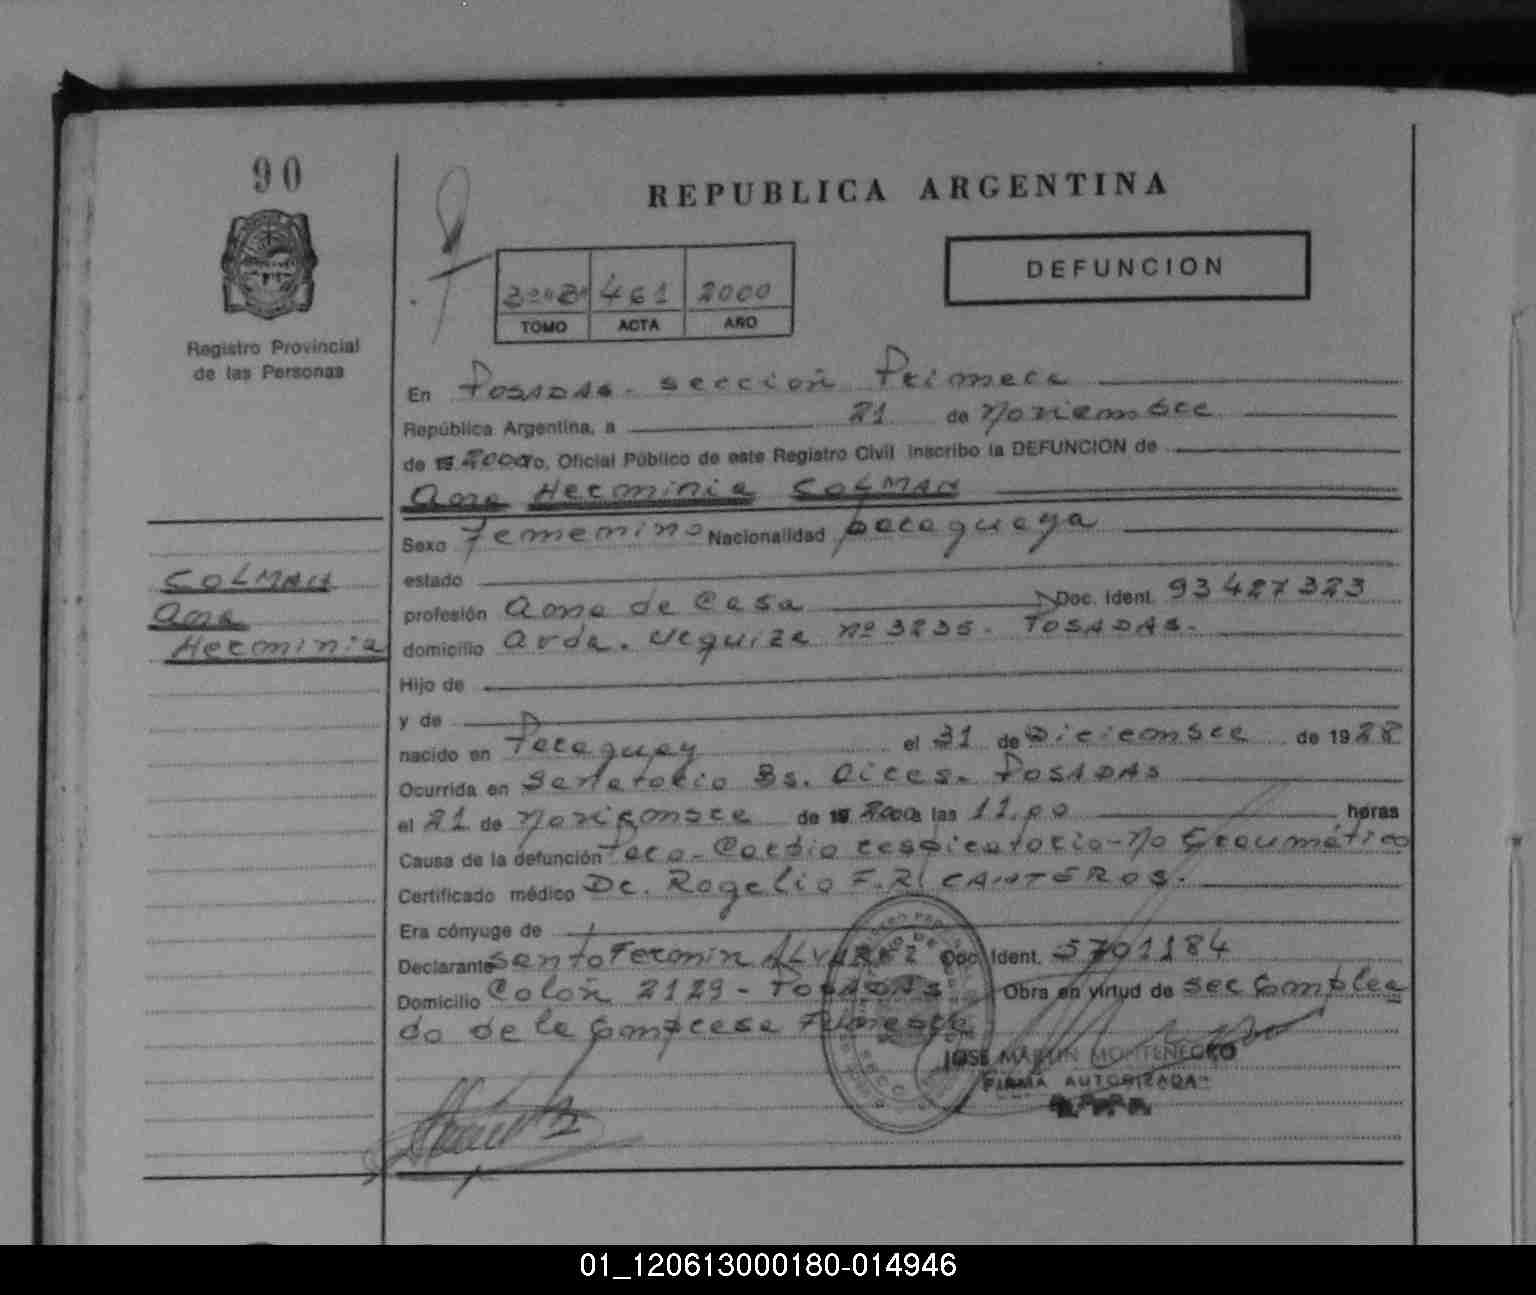 90
REPUBLICA ARGENTINA
DEFUNCION
461 2000
TOMO ACTA AÑO
Registro Provincial
de las Personas
En Posadas - sección Primera
República Argentina, a 21 de Noviembre
de 2000 yo, Oficial Público de este Registro Civil inscribo la DEFUNCION de
Ana Herminia COLMAN
Sexo Femenino Nacionalidad paraguaya
COLMAN
Ana
Herminia
estado
profesión Ama de Casa Doc. Ident. 93427323
domicilio Avda. Urquiza nº 3235 - POSADAS.
Hijo de
y de
nacido en Paraguay el 31 de Diciembre de 1928
Ocurrida en Sanatorio Bs. Aires - POSADAS
el 21 de Noviembre de 2000 a las 11,00 horas
Causa de la defunción Paro-Cardio respiratorio-no traumático
Certificado médico Dr. Rogelio F.R. CANTEROS.
Era cónyuge de
Declarante Santo Fermín ALVAREZ Doc. Ident. 5701184
Domicilio Colón 2129 - POSADAS Obra en virtud de ser Emplea
do de la Empresa Funebre
JOSE MARTIN MONTENEGRO
FIRMA AUTORIZADA
01_120613000180-014946